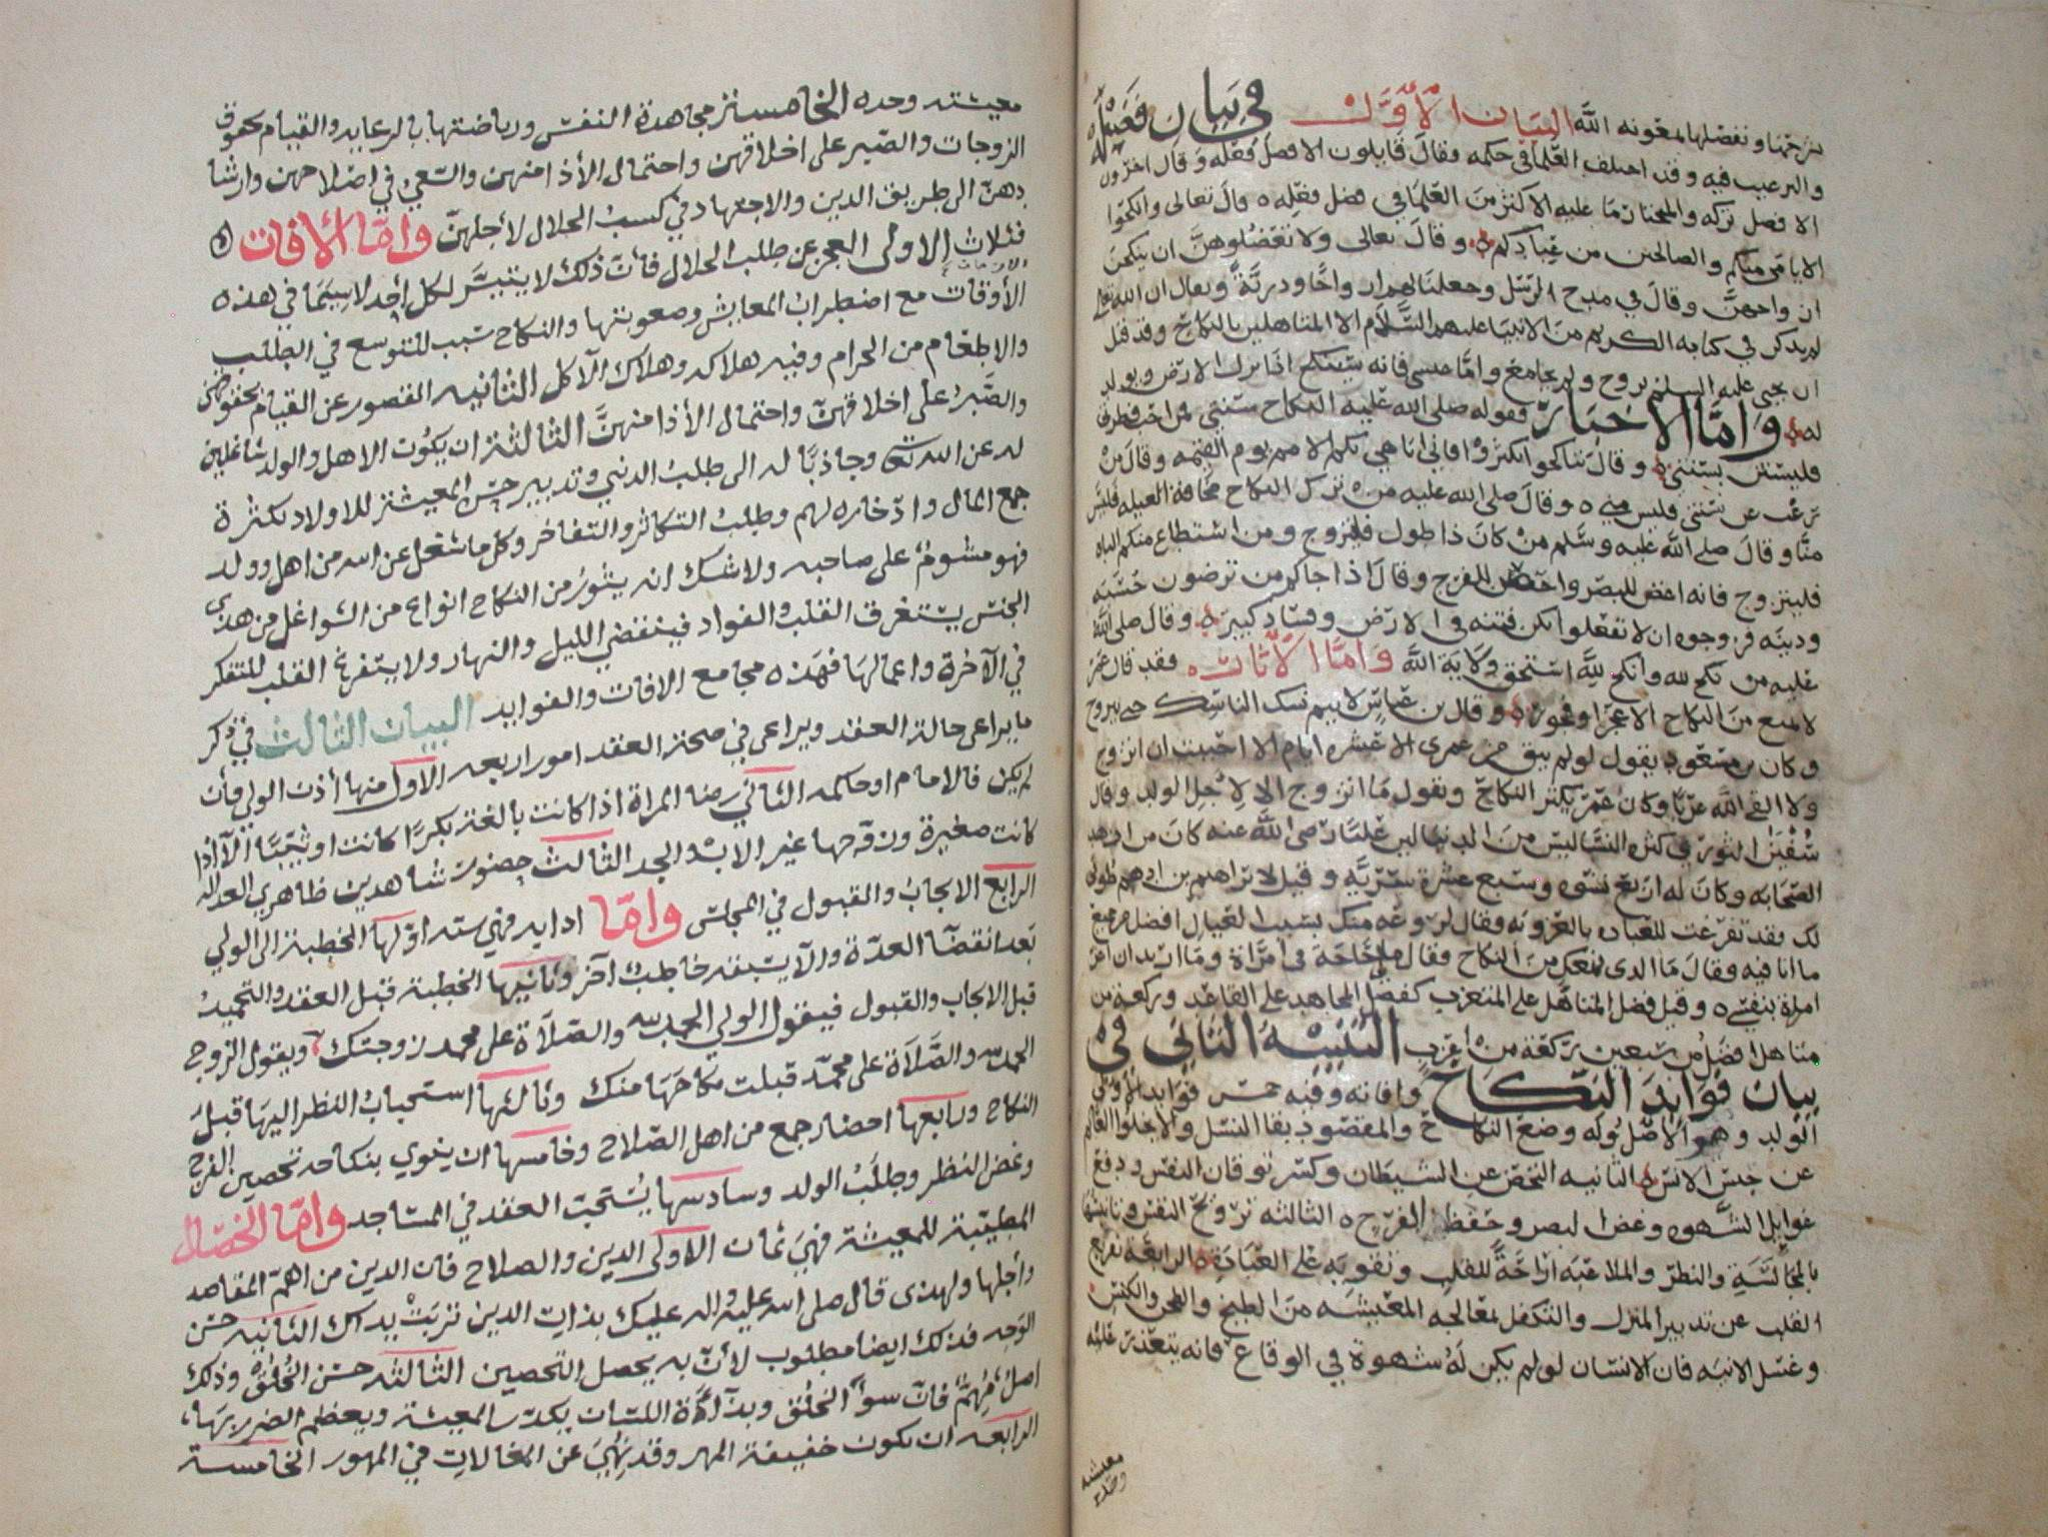 نترجمها ونفصلها بمعونه الله البيان الأول في بيان فضيله
والترغيب فيه وقد اختلف العلما في حكمه وقال قايلون الافضل فعله وقال اخرون
الافضل تركه والمختار ما عليه الاكثر من العلما في فضل فعله قال تعالى وانكحوا
الايامى منكم والصالحين من عبادكم وقال تعالى ولا تعضلوهن ان ينكحن
ازواجهن وقال في مدح الرسل وجعلنا لهم ازواجًا وذريةً ويقال ان الله تعالى
لم يذكر في كتابه الكريم من الانبيا عليهم السلام الا المتاهلين بالنكاح وقد قيل
ان يحيى عليه السلم تزوج ولم يجامع واما عيسى فانه سينكح اذا نزل الارض ويولد
له واما الاخبار فقوله صلى الله عليه النكاح سنتي فمن احب فطرتي
فليستن بسنتي وقال تناكحوا تكثروا فاني اباهي بكم الامم يوم القيمه وقال من
رغب عن سنتي فليس مني وقال صلى الله عليه من ترك النكاح مخافة العيله فليس
منا وقال صلى الله عليه وسلم من كان ذا طول فليتزوج ومن استطاع منكم الباه
فليتزوج فانه اغض للبصر واحصن للفرج وقال اذا جاكم من ترضون
ودينه فزوجوه ان لا تفعلوا تكن فتنه في الارض وفساد كبير وقال صلى الله
عليه من نكح لله وانكح لله استحق ولاية الله واما الاثار فقد قال عمر
لا يمنع من النكاح الا عجز او فجور وقال بن عباس لا يتم نسك الناسك حتى يتزوج
وكان بن مسعود يقول لو لم يبق من عمري الا عشره ايام الا احببت ان اتزوج
ولا القى الله عزبًا وكان عمر يكثر النكاح ويقول ما اتزوج الا لاجل الولد وقال
سفين الثوري كثره النسا ليس من الدنيا لان عليًا رضي الله عنه كان من ازهد
الصحابه وكان له اربع نسوه وسبع عشرة سرية وقيل لابراهيم بن ادهم طوبى
لك فقد تفرغت للعباده بالعزوبه فقال لروعه منك بسبب العيال افضل من جميع
ما انا فيه فقال ما الذي يمنعك من النكاح فقال مالي حاجة في امراة وما اريد ان اغر
امراة بنفسي وقيل فضل المتاهل على المتعزب كفضل المجاهد على القاعد وركعة من
متاهل افضل من سبعين ركعة من اعزب التنبيه الثاني في
بيان فوايد النكاح وافاته وفيه خمس فوايد الاولى
الولد وهو الاصل وله وضع النكاح والمقصود بقا النسل والا يخلوا العالم
عن جنس الانس الثانيه التحصن عن الشيطان وكسر توقان النفس ودفع
غوايل الشهوه وغض البصر وحفظ الفرج الثالثه ترويح النفس وتانيسها
بالمجالسة والنظر والملاعبة اراحةً للقلب وتقويه على العبادة الرابعة تفريغ
القلب عن تدبير المنزل والتكفل بمعالجه المعيشه من الطبخ والطحن والكنس
وغسل الانيه فان الانسان لو لم يكن له شهوة في الوقاع فانه يتعذر عليه
معيشته
وحده
معيشته وحده الخامسة مجاهدة النفس ورياضتها بالرعاية والقيام بحقوق
الزوجات والصبر على اخلاقهن واحتمال الأذا منهن والسعي في اصلاحهن وارشا
دهن الى طريق الدين والاجتهاد في كسب الحلال لأجلهن وامّا الافات
فثلاث الاولى العجز عن طلب الحلال فأن ذلك لا يتيسر لكل أحد لا سيما في هذه
الأوقات مع اضطراب المعايش وصعوبتها والنكاح سبب للتوسع في الطلب
والاطعام من الحرام وفيه هلاكه وهلاك الآكل الثانيه القصور عن القيام بحقوقهن
والصبر على اخلاقهن واحتمال الأذا منهن الثالثة ان يكون الاهل والولد شاغلين
له عن الله تعالى وجاذبًا له الى طلب الدنيا وتدبير حسن المعيشة للاولاد بكثرة
جمع المال وادّخاره لهم وطلب التكاثر والتفاخر وكل ما شغل عن الله من اهل وولد
فهو مشوم على صاحبه ولا شك انه يثور من النكاح انواع من الشواغل من هذي
الجنس يستغرق القلب والفواد فينقضي الليل والنهار ولا يتفرغ القلب للتفكر
في الآخرة واعمالها فهذه مجامع الافات والفوايد البيان الثالث في ذكر
ما يراعى حالة العقد ويراعى في صحة العقد امور اربعه الاول منها أذن الولي فأن
لم يكن فالامام او حاكمه الثاني رضا المراة اذا كانت بالغة بكرًا كانت او ثيبًا الا اذا
كانت صغيرة وزوجها غير الاب والجد الثالث حضور شاهدين ظاهري العداله
الرابع الايجاب والقبول في المجلس وامّا ادابه فهي سته اولها الخطبة الى الولي
بعد انقضا العدّة والا يسبقه خاطب آخر وثانيها الخطبة قبل العقد والتحميد
قبل الايجاب والقبول فيقول الولي الحمد لله والصلاة على محمد زوجتك ويقول الزوج
الحمد لله والصلاة على محمد قبلت نكاحها منك وثالثها استحباب النظر اليها قبل
النكاح ورابعها احضار جمع من اهل الصلاح وخامسها ان ينوي بنكاحه تحصين الفرج
وغض النظر وطلب الولد وسادسها يستحب العقد في المساجد وامّا الخصال
المطيبة للمعيشة فهي ثمان الاولى الدين والصلاح فان الدين من اهم المقاصد
وأجلها ولهذى قال صلى الله عليه واله عليك بذات الدين تربت يداك الثانيه حسن
الوجه فذلك ايضا مطلوب لأن به يحصل التحصين الثالثه حسن الخلق وذلك
اصل مهم فان سوأ الخلق وبذاءة اللسان يكدر المعيشة ويعظم الضرر بها،
الرابعه ان يكون خفيفة المهر وقد نهي عن المغالات في المهور الخامسة